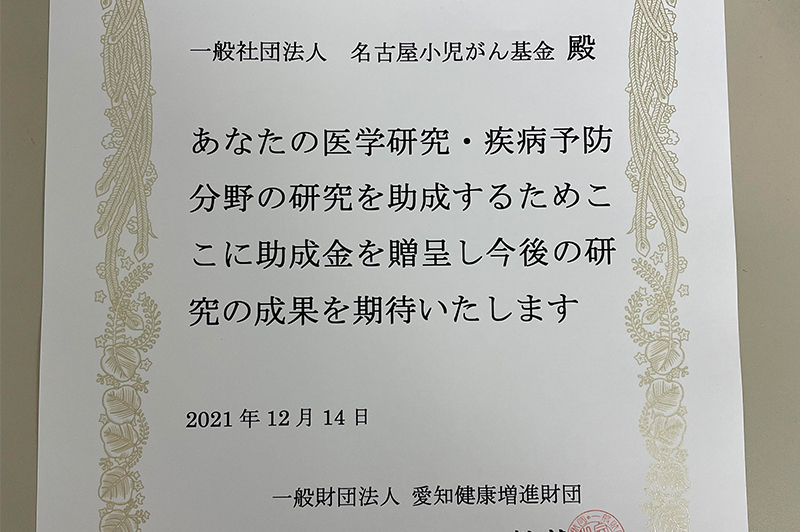 一般社団法人 名古屋小児がん基金 殿
あなたの医学研究・疾病予防
分野の研究を助成するためこ
こに助成金を贈呈し今後の研
究の成果を期待いたします
2021年12月14日
一般財団法人 愛知健康増進財団